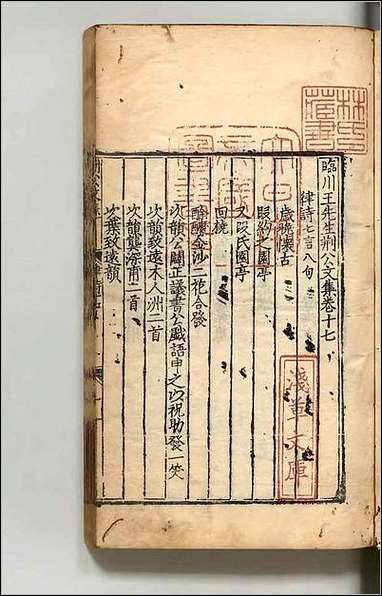 臨川王先生荆公文集卷十七
律詩七言八句
歲晚懷古
段約之園亭
又段氏園亭
回橈
酴醾金沙二花合發
次韻公闢正議書公戲語申之以祝助發一笑
次韻致遠木人洲二首
次韻龔深甫二首
次葉致遠韻
林氏藏書
淺草文庫